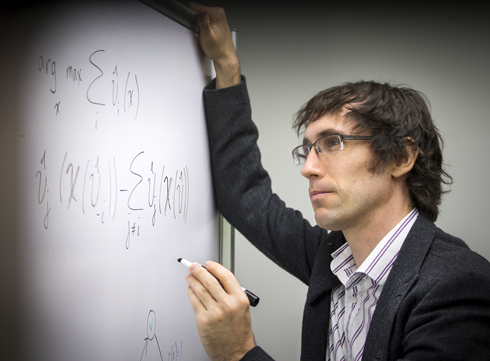 arg max_x Σ_i v̂_i(x)
v̂_i(x(v̂_{-i})) - Σ_{j≠i} v̂_j(x(v̂))